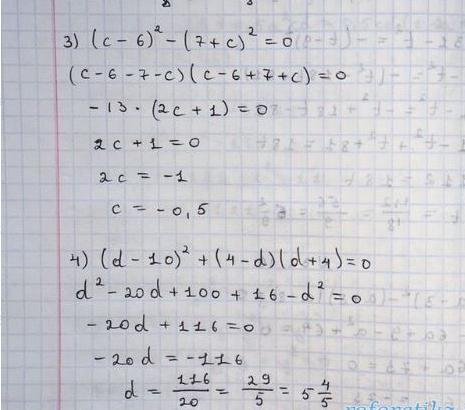 3) (c - 6)² - (7 + c)² = 0
(c - 6 - 7 - c)(c - 6 + 7 + c) = 0
- 13 · (2c + 1) = 0
2c + 1 = 0
2c = -1
c = - 0,5
4) (d - 10)² + (4 - d)(d + 4) = 0
d² - 20d + 100 + 16 - d² = 0
- 20d + 116 = 0
- 20d = -116
d = 116/20 = 29/5 = 5 4/5